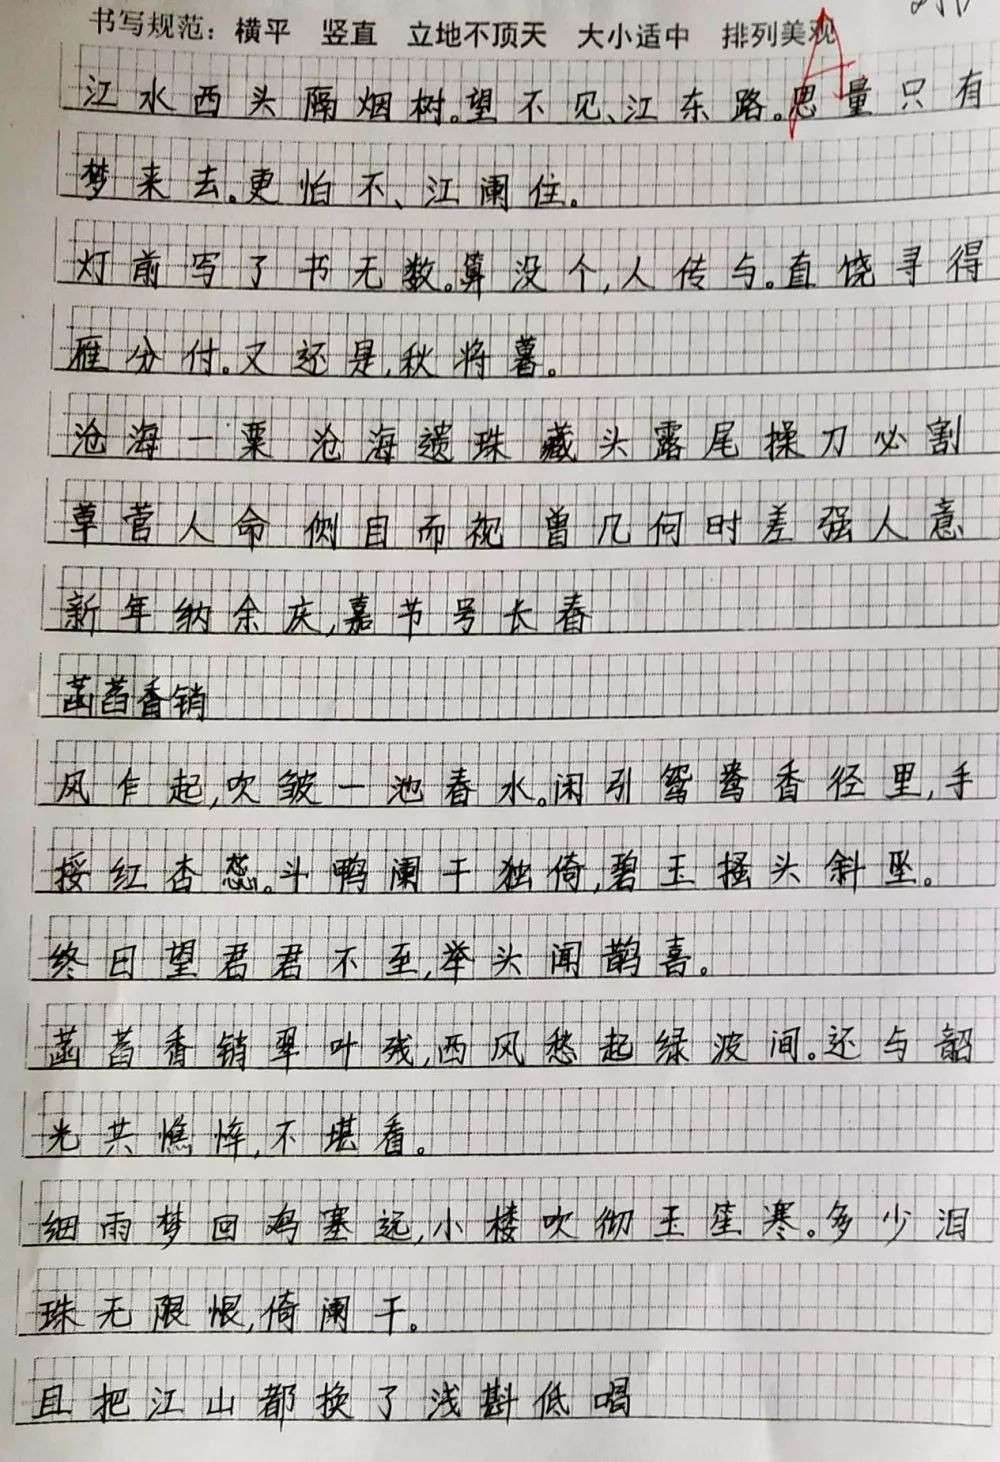 书写规范：横平 竖直 立地不顶天 大小适中 排列美观
江水西头隔烟树。望不见、江东路。思量只有
梦来去。更怕不、江阑住。
灯前写了书无数。算没个,人传与。直饶寻得
雁分付。又还是,秋将暮。
沧海一粟 沧海遗珠 藏头露尾 操刀必割
草菅人命 侧目而视 曾几何时 差强人意
新年纳余庆,嘉节号长春
菡萏香销
风乍起,吹皱一池春水。闲引鸳鸯香径里,手
挼红杏蕊。斗鸭阑干独倚,碧玉搔头斜坠。
终日望君君不至,举头闻鹊喜。
菡萏香销翠叶残,西风愁起绿波间。还与韶
光共憔悴,不堪看。
细雨梦回鸡塞远,小楼吹彻玉笙寒。多少泪
珠无限恨,倚阑干。
且把江山都换了浅斟低唱